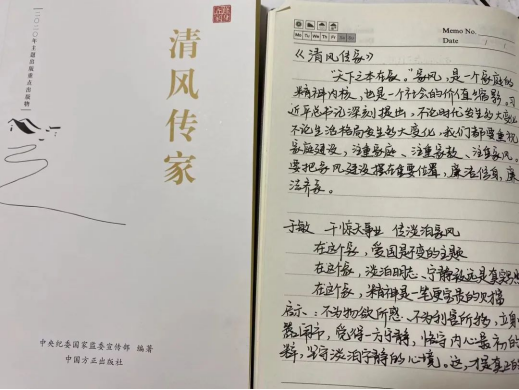 二〇二〇年主题出版重点出版物
清风传家
中央纪委国家监委宣传部 编著
中国方正出版社
Memo No.
Mo Tu We Th Fr Sa Su
Date / /
《清风传家》
“天下之本在家。”家风,是一个家庭的
精神内核,也是一个社会的价值缩影。习
近平总书记深刻提出,不论时代发生多大变化
不论生活格局发生多大变化,我们都要重视
家庭建设,注重家庭、注重家教、注重家风。
要把家风建设摆在重要位置,廉洁修身,廉
洁齐家。
于敏 干惊天事业 传淡泊家风
在这个家,爱国是不变的主题
在这个家,淡泊明志、宁静致远是真实
在这个家,精神是一笔更宝贵的财富
启示:不为物欲所惑、不为利害所移,立身
闹市,觅得一方宁静,恪守内心最初的
粹,坚守淡泊宁静的心境。这,才是真正的